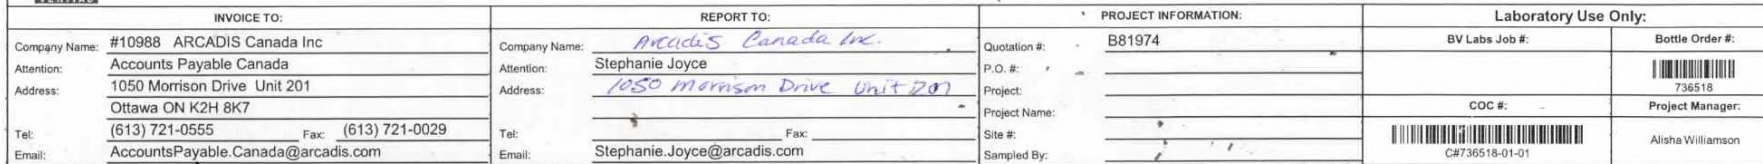 INVOICE TO:
Company Name: #10988 ARCADIS Canada Inc
Attention: Accounts Payable Canada
Address: 1050 Morrison Drive Unit 201
Ottawa ON K2H 8K7
Tel: (613) 721-0555 Fax: (613) 721-0029
Email: AccountsPayable.Canada@arcadis.com
REPORT TO:
Company Name: Arcadis Canada Inc.
Attention: Stephanie Joyce
Address: 1050 Morrison Drive Unit 201
Tel: Fax:
Email: Stephanie.Joyce@arcadis.com
PROJECT INFORMATION:
Quotation #: B81974
P.O. #:
Project:
Project Name:
Site #:
Sampled By:
Laboratory Use Only:
BV Labs Job #: Bottle Order #:
736518
COC #: Project Manager:
C#736518-01-01 Alisha Williamson